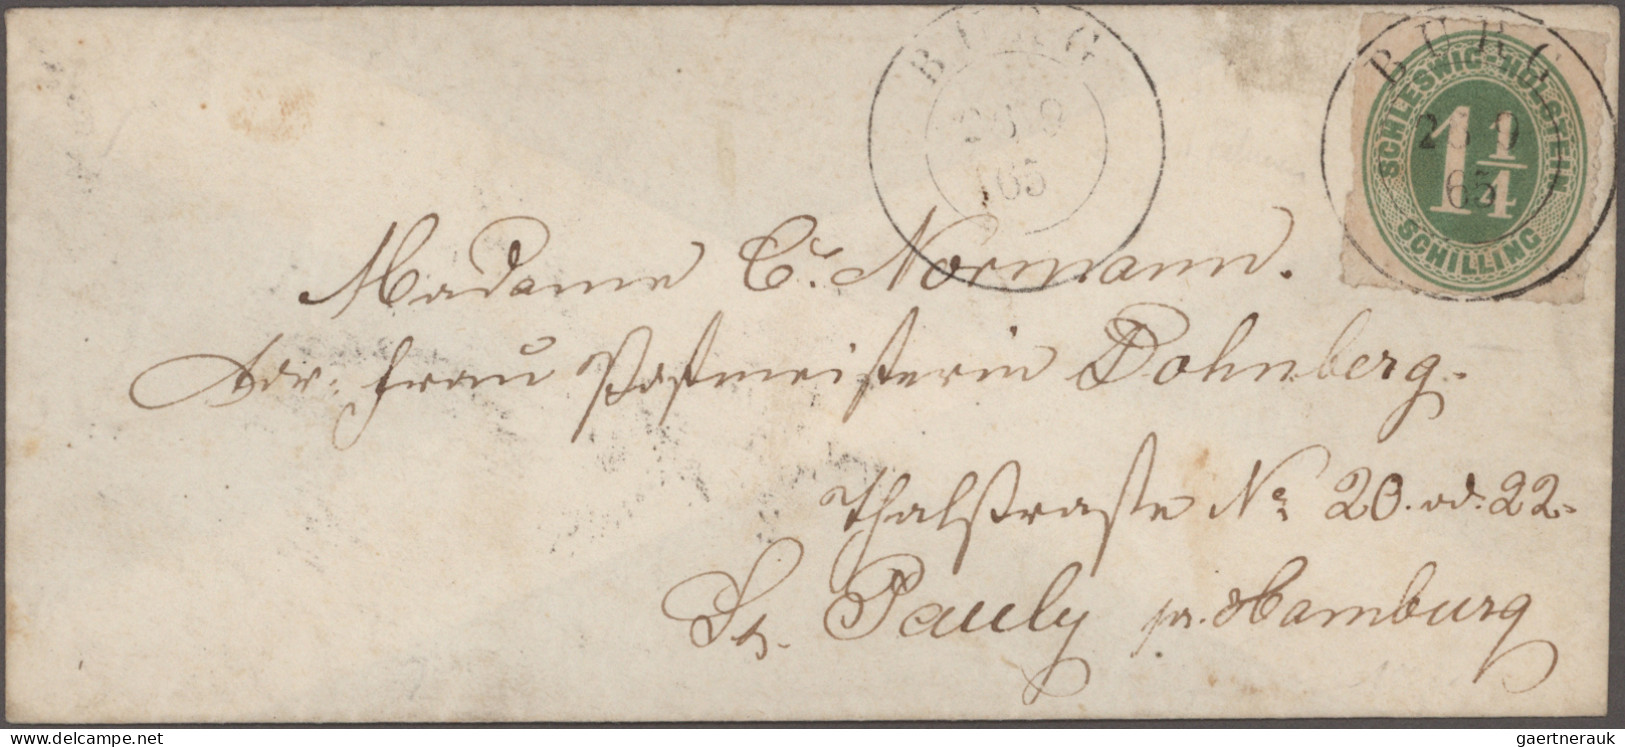 BURG
26 9
65
BURG
26 9
65
SCHLESWIG-HOLSTEIN
1 1/4
SCHILLING
Madame C. Normann.
Adr: Frau Postmeisterin Dohnberg.
Thalstraße No 20. od. 22
St. Pauly pr. Hamburg
www.delcampe.net
gaertnerauk